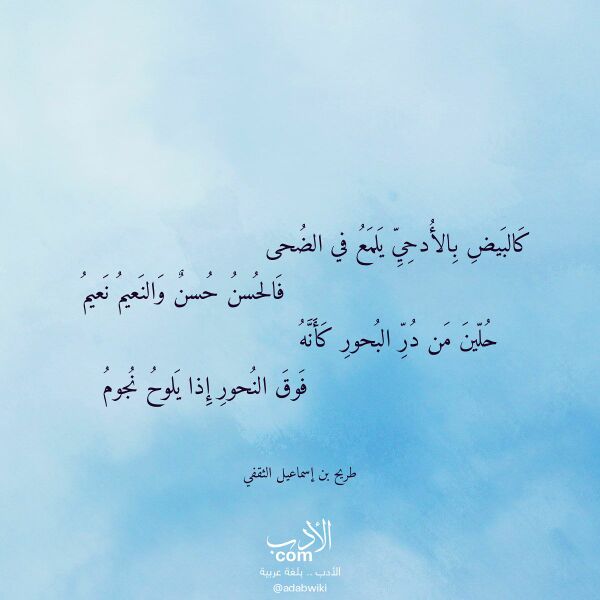 كَالبَيضِ بِالأُدحِيِّ يَلمَعُ في الضُحى
فَالحُسنُ حُسنٌ وَالنَعيمُ نَعيمُ
حُلّينَ مَن دُرِّ البُحورِ كَأَنَّهُ
فَوقَ النُحورِ إِذا يَلوحُ نُجومُ
طريح بن إسماعيل الثقفي
الأدب
com
الأدب .. بلغة عربية
@adabwiki